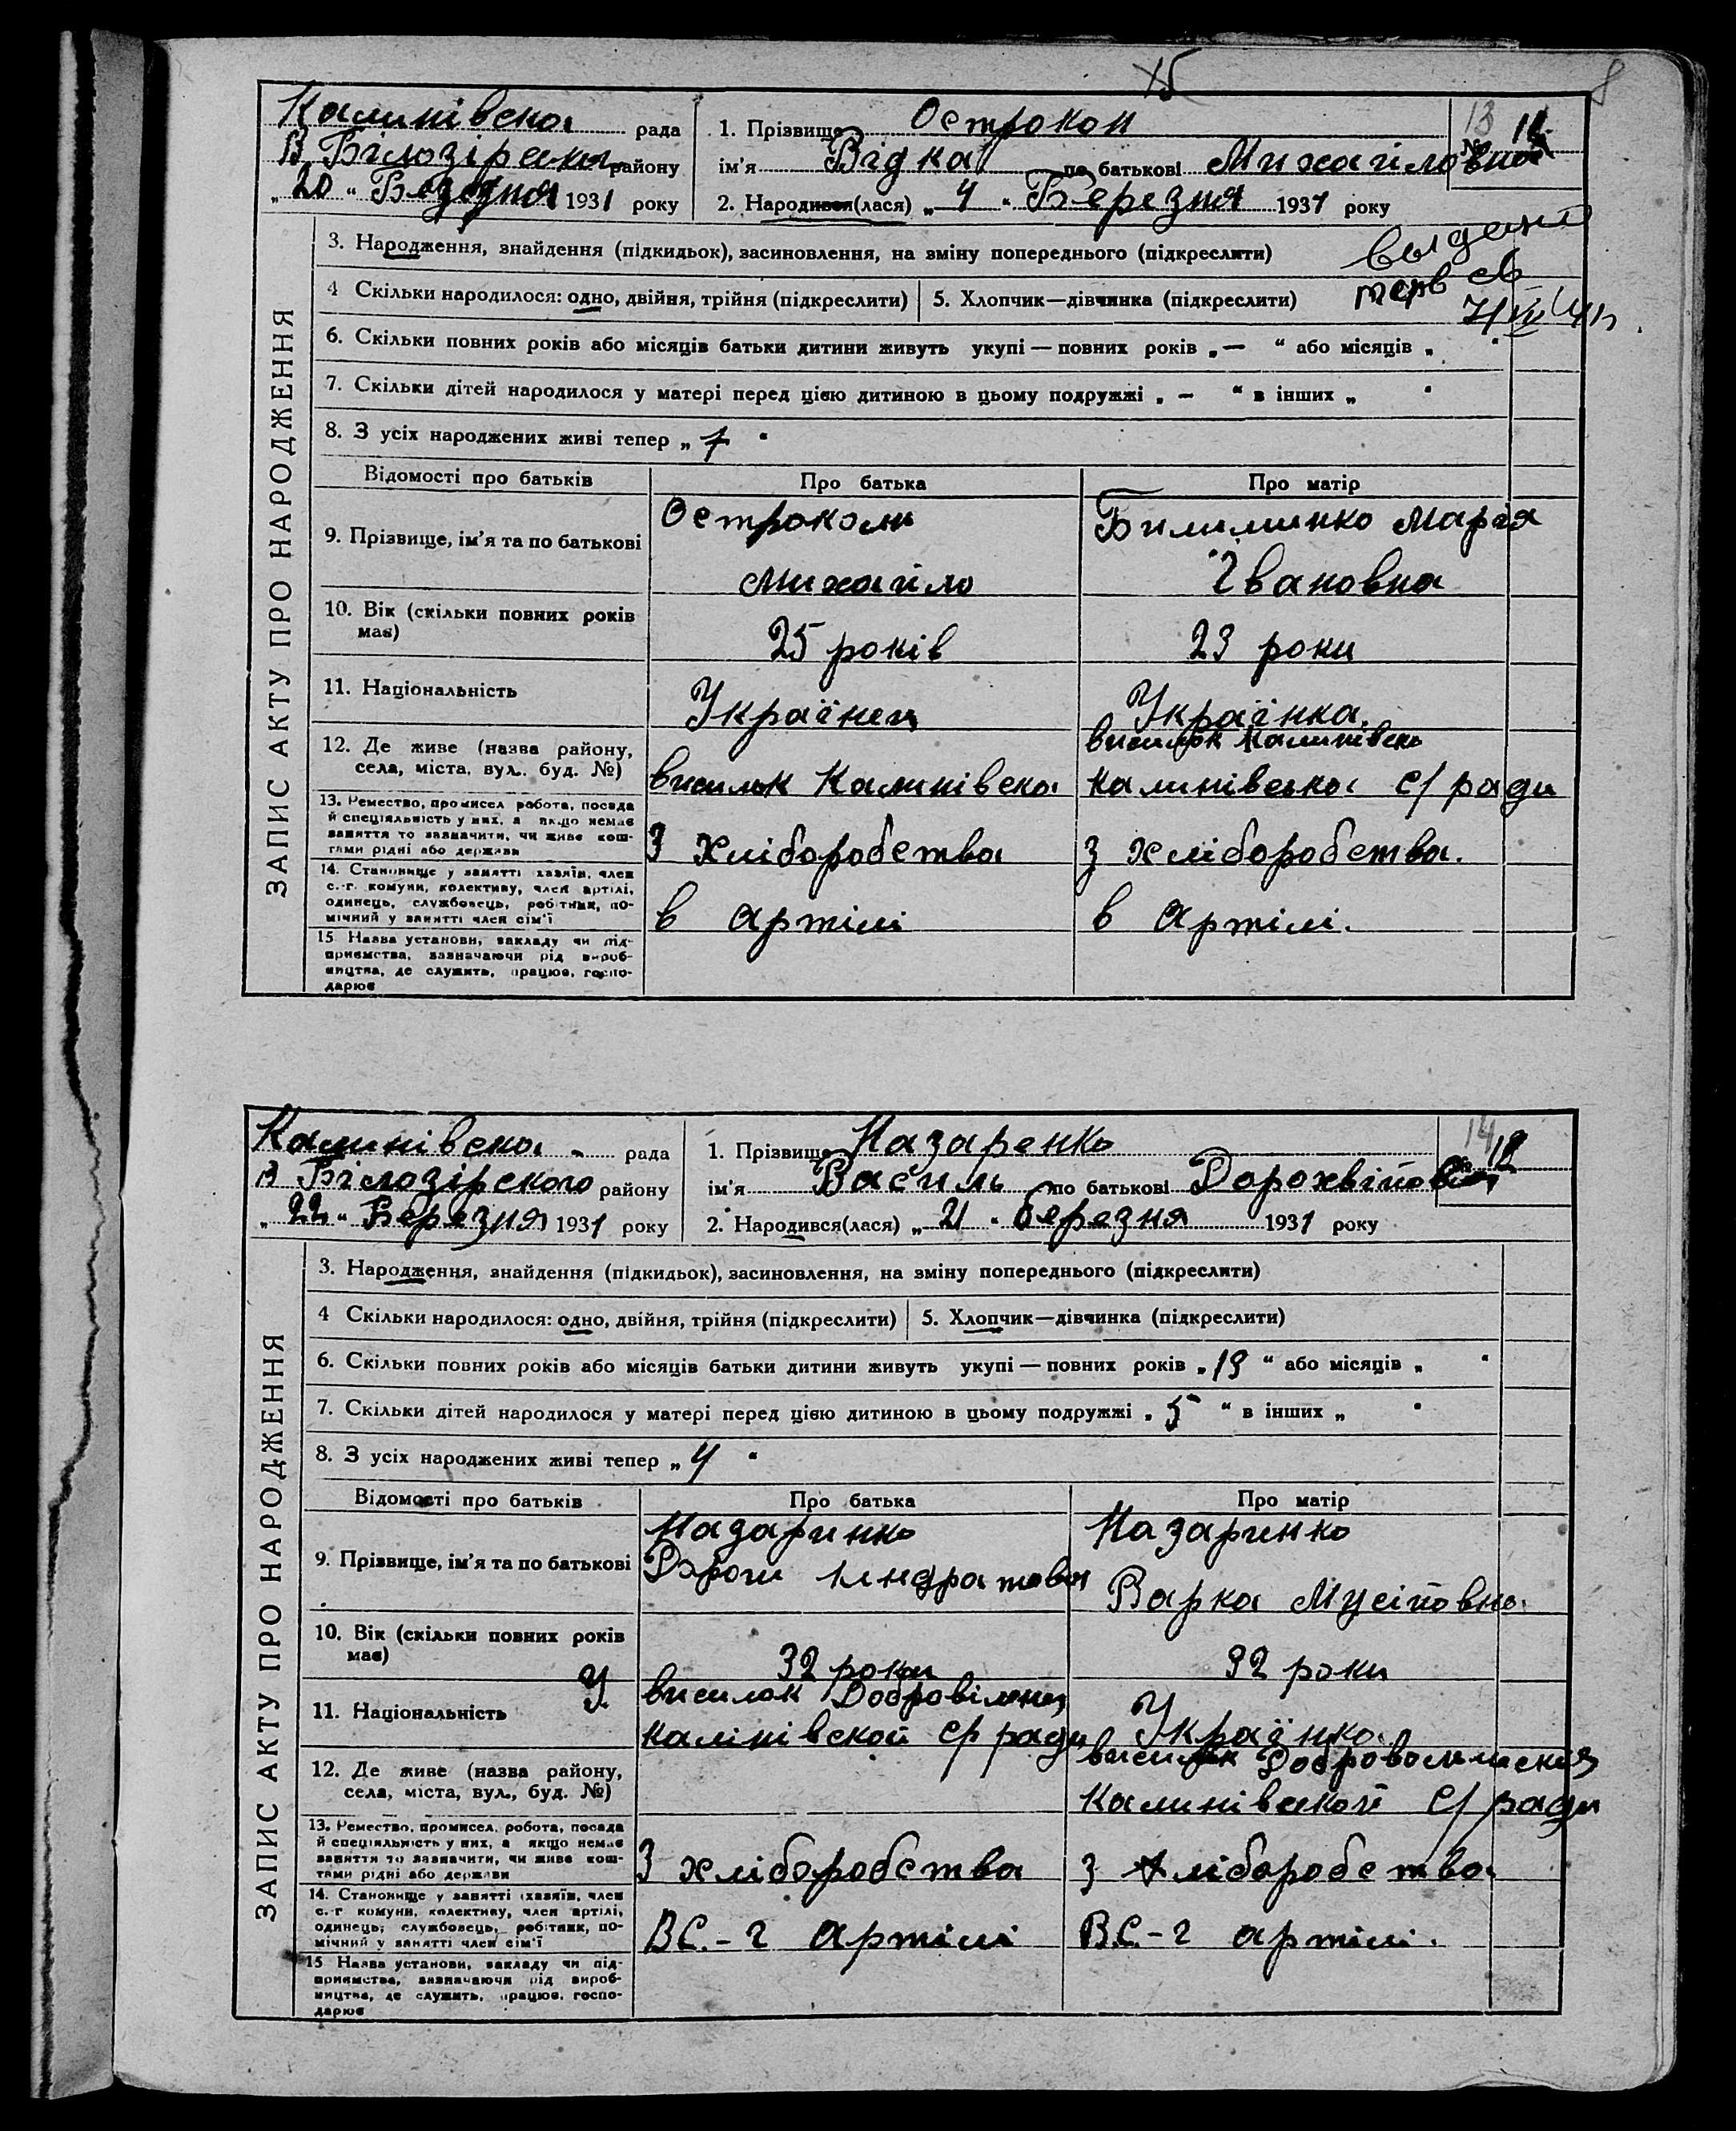 15
8
Калинівська рада
В Білозірський району
„20“ Березня 1931 року
1. Прізвище Острокон
13 11
№
ім'я Відка по батькові Михайловна
2. Народився(лася) „4“ Березня 1931 року
3. Народження, знайдення (підкидьок), засиновлення, на зміну попереднього (підкреслити)
4 Скільки народилося: одно, двійня, трійня (підкреслити)
5. Хлопчик—дівчинка (підкреслити)
6. Скільки повних років або місяців батьки дитини живуть укупі — повних років „—“ або місяців „ “
7. Скільки дітей народилося у матері перед цією дитиною в цьому подружжі „—“ в інших „ “
8. З усіх народжених живі тепер „1“
ЗАПИС АКТУ ПРО НАРОДЖЕННЯ
Відомості про батьків
Про батька
Про матір
9. Прізвище, ім'я та по батькові
Острокон
Михайло
Марія
Івановна
10. Вік (скільки повних років має)
25 років
23 роки
11. Національність
Українец
Українка.
12. Де живе (назва району, села, міста, вул. буд. №)
висилок Калинівска
висилок Калинівск
калинівська с/ ради
13. Ремество, промисел робота, посада й спеціяльність у них, а якщо немає заняття то зазначити, чи живе коштами рідні або держави
З хліборобства
з хліборобства.
14. Становище у занятті хазяїн, член с.-г. комуни, колективу, член артілі, одинець, службовець, робітник, помічний у занятті член сім'ї
в артілі
в артілі.
15 Назва установи, закладу чи підприємства, зазначаючи рід виробництва, де служить, працює, господарює
Калинівска рада
В Білозірского району
„22“ Березня 1931 року
1. Прізвище Назаренко
14 12
№
ім'я Василь по батькові Дорохвійович
2. Народився(лася) „21“ березня 1931 року
3. Народження, знайдення (підкидьок), засиновлення, на зміну попереднього (підкреслити)
4 Скільки народилося: одно, двійня, трійня (підкреслити)
5. Хлопчик—дівчинка (підкреслити)
6. Скільки повних років або місяців батьки дитини живуть укупі — повних років „13“ або місяців „ “
7. Скільки дітей народилося у матері перед цією дитиною в цьому подружжі „5“ в інших „ “
8. З усіх народжених живі тепер „4“
ЗАПИС АКТУ ПРО НАРОДЖЕННЯ
Відомості про батьків
Про батька
Про матір
9. Прізвище, ім'я та по батькові
Назаринко
Назаринко
Варка Мусіповна
10. Вік (скільки повних років має)
32 роки
32 роки
11. Національність
У
висилок
калінівской с/ ради
Українка
12. Де живе (назва району, села, міста, вул., буд. №)
висилок
Калинівской с/ ради
13. Ремество, промисел, робота, посада й спеціяльність у них, а якщо немає заняття то зазначити, чи живе коштами рідні або держави
З хліборобства
з хліборобства
14. Становище у занятті (хазяїн, член с.-г. комуни, колективу, член артілі, одинець, службовець, робітник, помічний у занятті член сім'ї
ВС.-г артілі
В.С.-г артілі.
15 Назва установи, закладу чи підприємства, зазначаючи рід виробництва, де служить, працює, господарює